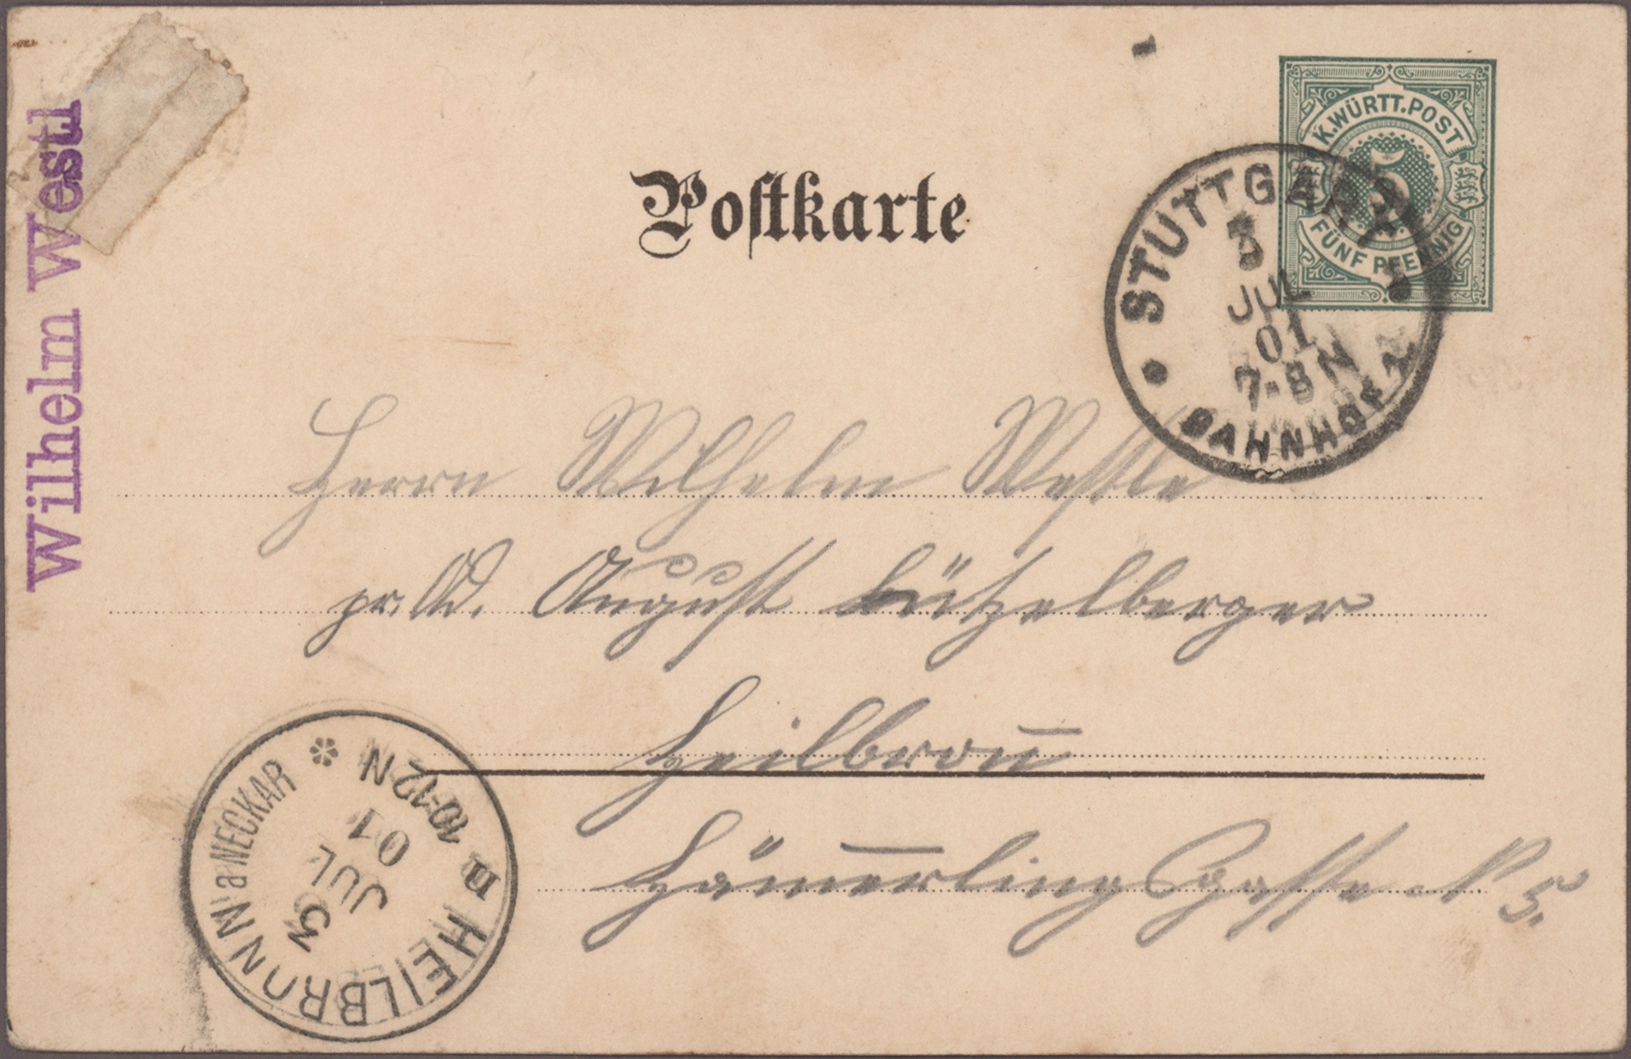 Wilhelm Westl
Postkarte
K. WÜRTT. POST
5
FÜNF PFENNIG
STUTTGART
3
JUL
01
7-8 N
BAHNHOF
Herrn Wilhelm Westle
pr. Ad. August Lützelberger
Heilbron̄
Häm̄erlingsgasse N 5.
HEILBRONN a NECKAR
3
JUL
01
10-12 N
II